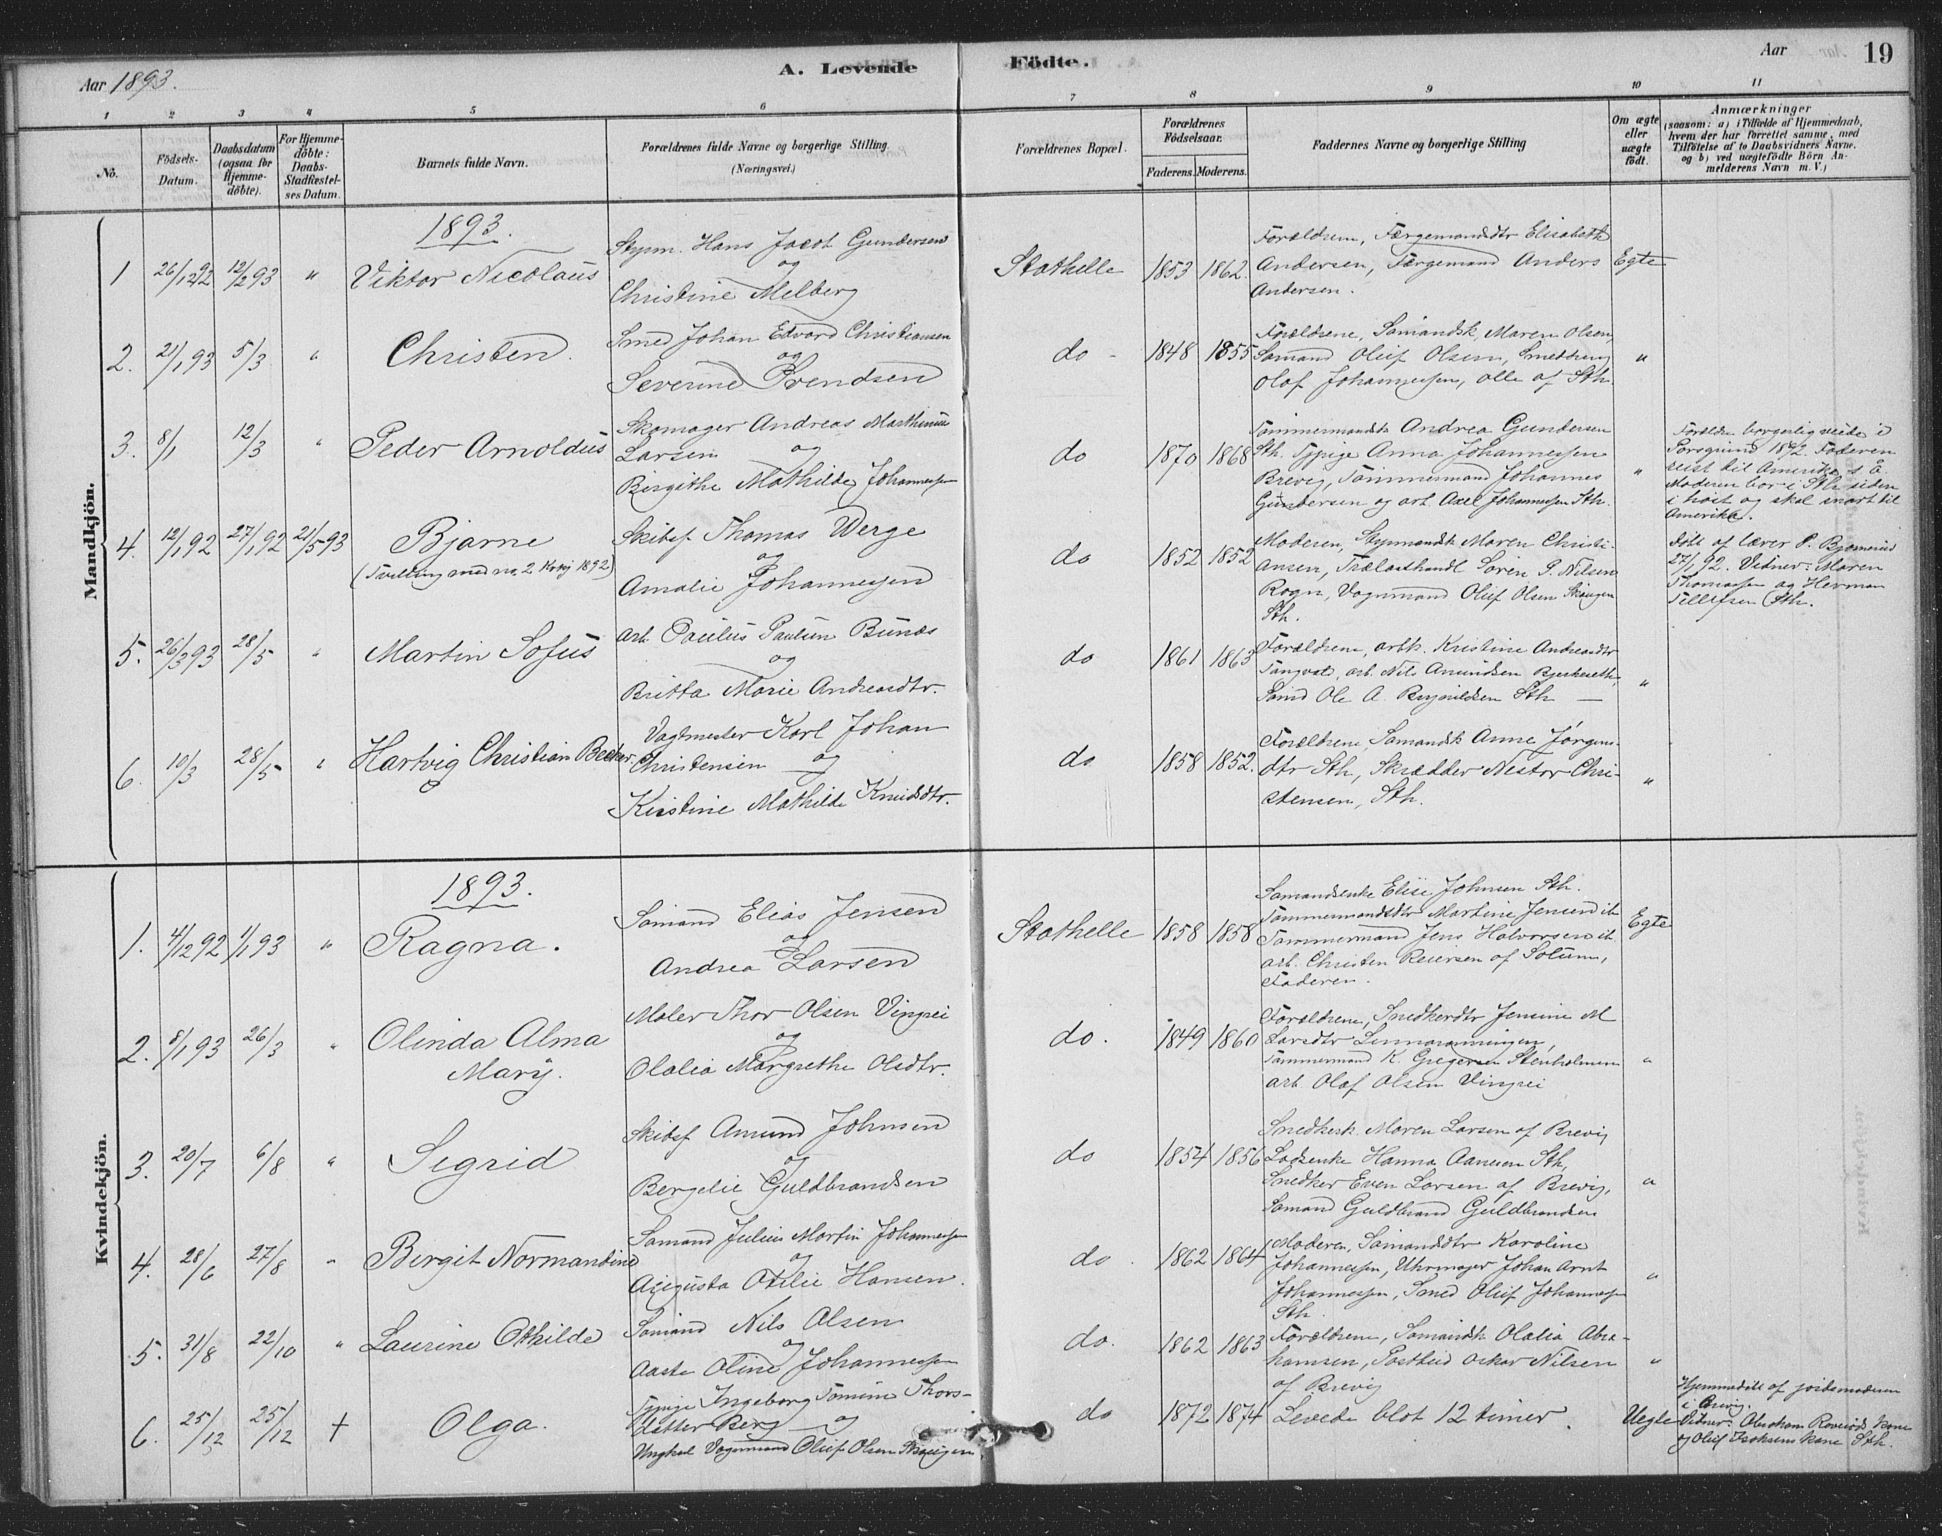 Aar 1893.
A. Levende
Födte.
Aar
19
1
2
3
4
5
6
7
8
9
10
11
No.
Födsels-
Datum.
Daabsdatum
(ogsaa for
Hjemme-
döbte).
For Hjemme-
döbte:
Daabs-
Stadfæstel-
ses Datum.
Barnets fulde Navn.
Forældrenes fulde Navne og borgerlige Stilling
(Næringsvei.)
Forældrenes Bopæl.
Forældrenes
Födselsaar.
Faderens.
Moderens.
Faddernes Navne og borgerlige Stilling
Om ægte
eller
uægte
födt.
Anmærkninger
(saasom: a) i Tilfælde af Hjemmedaab,
hvem der har forrettet samme, med
Tilföielse af to Daabsvidners Navne,
og b) ved uægtefödte Börn An-
melderens Navn m. V.)
Mandkjön.
1893.
1
26/12 92
12/2 93
"
Viktor Nicolaus
Styrm. Hans Jacob Gundersen
og
Christine Melberg
Stathelle
1853
1862.
Forældrene, Færgemandsdtr Elisabeth
Andersen, Færgemand Anders
Andersen.
Egte
2.
21/1 93
5/3
"
Christen.
Smed Johan Edvard Christiansen
og
Severine Svendsen
do
1848
1855
Forældrene, Sømandsk. Maren Olsen,
Sømand Oluf Olsen, Smeddreng
Olaf Johannessen, alle af Sth.
"
3.
8/1
12/3
"
Peder Arnoldus
Skomager Andreas Marthinius
Larsen og
Birgithe Mathilde Johannessen
do
1870
1868
Tømmermandsk Andrea Gundersen
Sth. Tjpige Anna Johannessen
Brevig, Tømmermand Johannes
Gundersen og arb. Axel Johannessen Sth.
"
Forældre borgerlig viede i
Porsgrund 1892. Faderen
reist til Amerika s. å.
Moderen bor i Sth siden
i høst og skal snart til
Amerika.
4.
12/1 92
27/1 92
21/5 93
Bjarne
(Tvilling med no 2 Kvkj 1892)
Skibsf Thomas Werge
og
Amalie Johannessen
do
1852
1852
Moderen, Styrmandsk Maren Christi-
ansen, Trælasthandl Søren P. Nilsen
Rogn, Vognmand Oluf Olsen Skougen
Sth.
Døbt af lærer P. Bjomerud
27/1 92. Vidner: Maren
Thomassen og Herman
Tellefsen Sth.
5.
26/3 93
28/5
"
Martin Sofus
arb. Paulus Paulsen Bunæs
og
Britta Marie Andreasdtr.
do
1861
1863
Forældrene, arbk. Kristine Andreasdtr
Tangvald, arb. Nils Amundsen Bjerkeseth,
Smed Ole A. Bergvildsen Sth
"
6.
10/3
28/5
"
Hartvig Christian Becker
Vagtmester Karl Johan
Christensen og
Kristine Mathilde Knudsdtr.
do
1858
1852.
Forældrene, Sømandsk Anne Jørgens-
dtr Sth, Skrædder Nestor Chri-
stensen, Sth.
"
Kvindekjön.
1893.
1.
4/12 92
1/1 93
"
Ragna.
Sømand Elias Jensen
og
Andrea Larsen
Stathelle
1858
1858
Sømandsenke Elise Johnsen Sth.
Tømmermandsdtr Martine Jensen ib
Tømmermand Jens Halvorsen ib
arb. Christen Reiersen af Solum,
Faderen.
Egte
2.
8/1 93
26/3
"
Olinda Alma
Mary.
Maler Thor Olsen Vingrei
og
Olalia Margrethe Olsdtr.
do.
1849
1860
Forældrene, Snedkerdtr Jensine M
Larsdtr
Tømmermand K. Gregersen Stenholmen
arb. Olaf Olsen Vingrei
"
3.
20/7
6/8
"
Sigrid
Skibsf Amund Johnsen
og
Bergelie Guldbrandsen
do
1854
1856
Snedkerk Maren Larsen af Brevig
Lodsenke Hanna Aanesen Sth,
Snedker Even Larsen af Brevig,
Sømand Guldbrand Guldbrandsen
"
4.
28/6
27/8
"
Birgit Normandine
Sømand Julius Martin Johannessen
og
Augusta Otilie Hansen.
do.
1862
1864
Moderen, Sømandsdtr Karoline
Johannessen, Uhrmager Johan Arnt
Johannessen, Smed Oluf Johannessen
Sth.
"
5.
31/8
22/10
"
Laurine Othilde
Sømand Nils Olsen
og
Aaste Oline Johannessen
do.
1862
1863
Forældrene, Sømandsk Olalia Abra-
hamsen, Postbud Oskar Nilsen
af Brevig
"
6.
25/12
25/12
+
Olga.
Tjpige Ingeborg Tomine Thors-
datter Berg og
Ungkal Vognmand Oluf Olsen Skougen
do
1872
1874
Levede blot 12 timer.
Uegte
Hjemmedøbt af jordemoderen
i Brevig.
Vidner: Abraham kone
og Oluf Isaksens kone Sth.